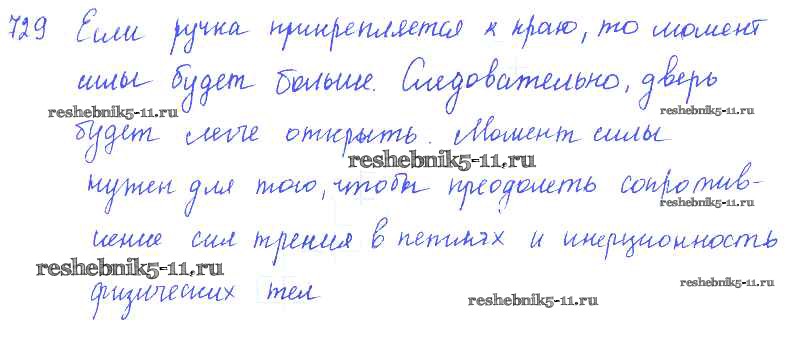 729 Если ручка прикрепляется к краю, то момент
силы будет больше. Следовательно, дверь
reshebnik5-11.ru reshebnik5-11.ru
будет легче открыть. Момент силы
reshebnik5-11.ru
нужен для того, чтобы преодолеть сопротив-
reshebnik5-11.ru
ление сил трения в петлях и инерционность
reshebnik5-11.ru
физических тел
reshebnik5-11.ru
reshebnik5-11.ru